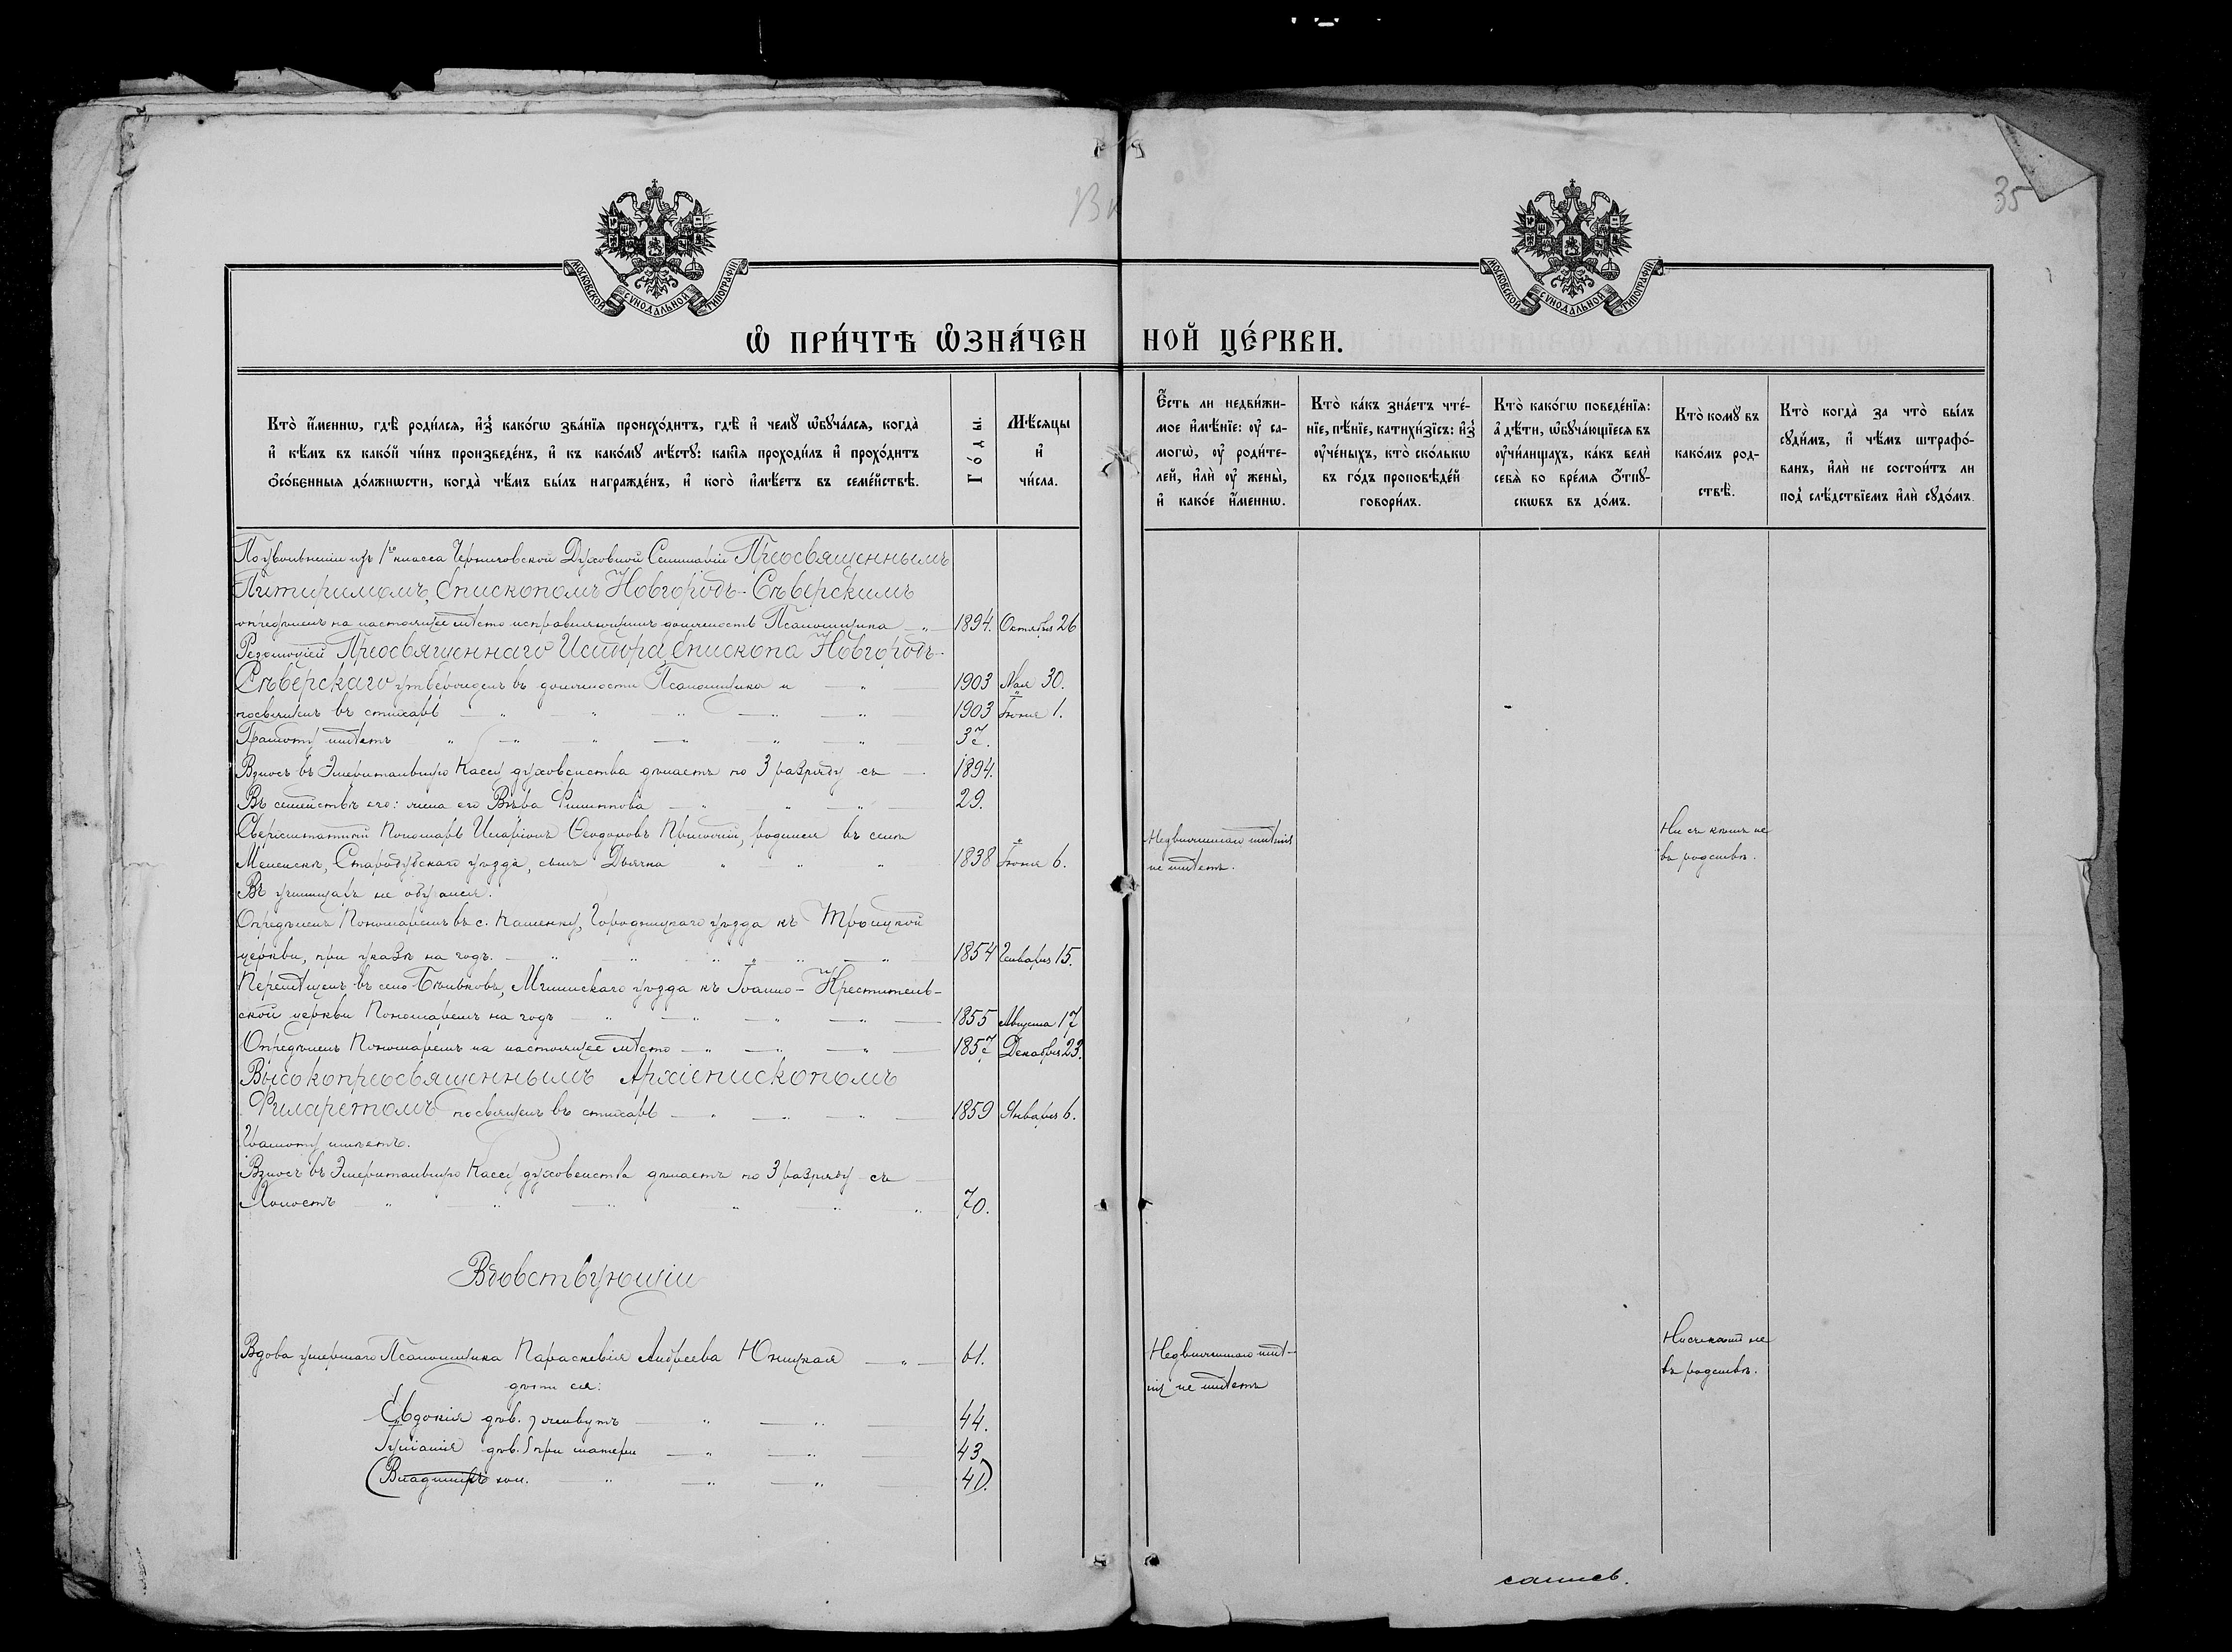 35
МОСКОВСКОЙ СУНОДАЛЬНОЙ ТИПОГРАФІИ
МОСКОВСКОЙ СУНОДАЛЬНОЙ ТИПОГРАФІИ
Ѡ ПРИ́ЧТѢ ѠЗНА́ЧЕННОЙ ЦЕ́РКВИ.
Кто̀ и҆́менно, гдѣ̀ роди́лся, и҆з̾ како́гѡ зва́нїя происхо́дитъ, гдѣ̀ и҆ чемꙋ̀ ѡ҆бꙋча́лся, когда̀
и҆ кѣ́мъ въ како́й чи́нъ произведе́нъ, и҆ къ како́мꙋ мѣ́стꙋ: какі̑я проходи́лъ и҆ прохо́дитъ
ѻ҆со́бенныя до́лжнѡсти, когда̀ чѣ́мъ бы́лъ награжде́нъ, и҆ кого̀ и҆мѣ́етъ въ семе́йствѣ.
Го́ды.
Мѣ́сяцы
и҆
чи́сла.
Є҆́сть ли недви́жи-
мое и҆мѣ́нїе: оу҆ са-
могѡ̀, оу҆ роди́те-
лей, и҆лѝ оу҆ жены̀,
и҆ како́е и҆́меннѡ.
Кто̀ ка́къ зна́етъ чте́-
нїе, пѣ́нїе, катихи́зїсъ: и҆з̾
оу҆че́ныхъ, кто̀ ско́лькѡ
въ го́дъ проповѣ́дей
говори́лъ.
Кто̀ како́гѡ поведе́нїя:
а҆ дѣ́ти, ѡ҆бꙋча́ющїеся въ
оу҆чи́лищахъ, ка́къ велѝ
себѧ̀ во вре́мя ѿпꙋ-
скѡвъ въ до́мъ.
Кто̀ комꙋ̀ въ
како́мъ род-
ствѣ̀.
Кто̀ когда̀ за что̀ бы́лъ
сꙋди́мъ, и҆ чѣ́мъ штрафо́-
ванъ, и҆лѝ не состои́тъ ли
под̾ слѣ́дствїемъ и҆лѝ сꙋдо́мъ.
По увольненіи изъ 1го класса Черниговской Духовной Семинаріи Преосвященнымъ
Питиримомъ, Епископомъ Новгородъ-Сѣверскимъ
опредѣленъ на настоящее мѣсто исправляющимъ должность Псаломщика 1894. Октября 26
Резолюціей Преосвященнаго Исидора, Епископа Новгородъ-
Сѣверскаго утвержденъ въ должности Псаломщика и 1903 Мая 30.
посвященъ въ стихарь 1903 Іюня 1.
Грамоту имѣетъ 37.
Взносъ въ Эмеритальную Кассу духовенства дѣлаетъ по 3 разряду съ 1894.
Въ семействѣ его: жена его Вѣра Филиппова 29.
Сверхштатный Пономарь Иларіонъ Ѳеодоровъ, родился въ селѣ
Меленскѣ, Стародубскаго уѣзда, сынъ Дьячка 1838 Іюня 6.
Недвижимаго имѣнія
не имѣетъ.
Ни съ кѣмъ не
въ родствѣ.
Въ училищахъ не обучался.
Опредѣленъ Пономаремъ въ с. Каменку, Городницкаго уѣзда къ Троицкой
церкви, при указѣ на годъ. 1854 Генваря 15.
Перемѣщенъ въ село Бѣлков, Мглинскаго уѣзда къ Іоанно-Креститель-
ской церкви Пономаремъ на годъ 1855 Августа 17
Опредѣленъ Пономаремъ на настоящее мѣсто 1857 Декабря 23.
Высокопреосвященнымъ Архіепископомъ
Филаретомъ посвященъ въ стихарь 1859 Января 6.
Грамоту имѣетъ.
Взносъ въ Эмеритальную Кассу духовенства дѣлаетъ по 3 разряду съ
Холостъ 70.
Вдовствующіи
Вдова умершаго Псаломщика Параскевія Андреева Юницкая 61.
Недвижимаго имѣ-
нія не имѣетъ
Ни съ кѣмъ не
въ родствѣ.
дѣти ея:
Евдокія дѣв. живутъ 44.
Іуліанія дѣв. при матери 43.
(Владиміръ хол. 41).